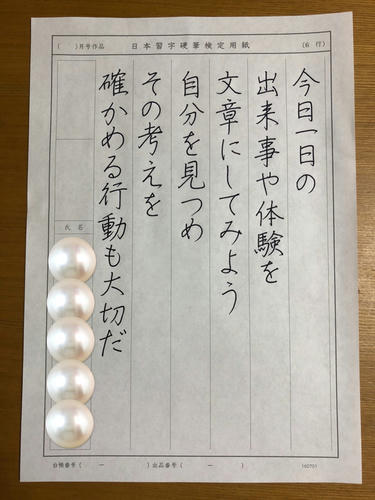 ( )月号作品 日本習字硬筆検定用紙 (6 行)
今日一日の
出来事や体験を
文章にしてみよう
自分を見つめ
その考えを
確かめる行動も大切だ
氏名
台帳番号( ー )出品番号( ー )
160701